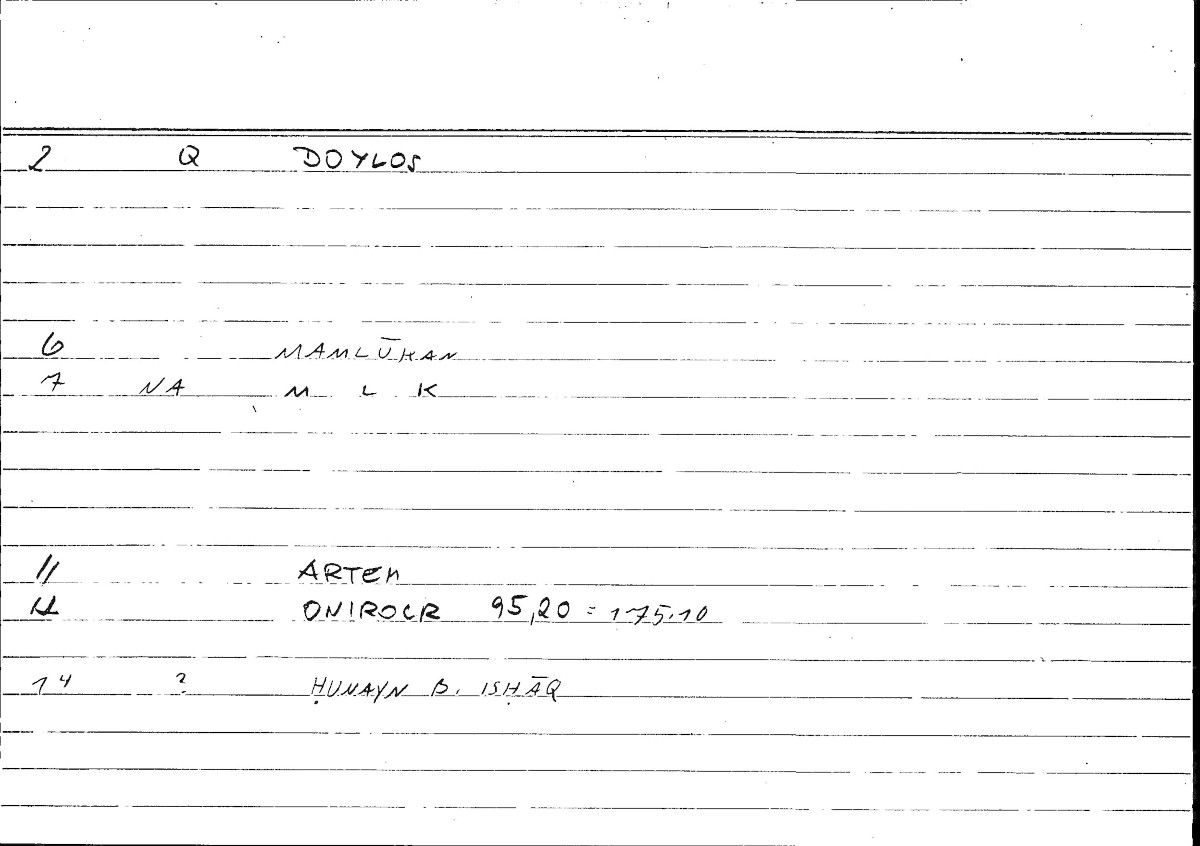 2 Q DOYLOS
6 MAMLŪKAN
7 NA M L K
11 ARTEM
12 ONIROCR 95,20 = 175.10
14 ? ḤUNAYN B. ISḤĀQ